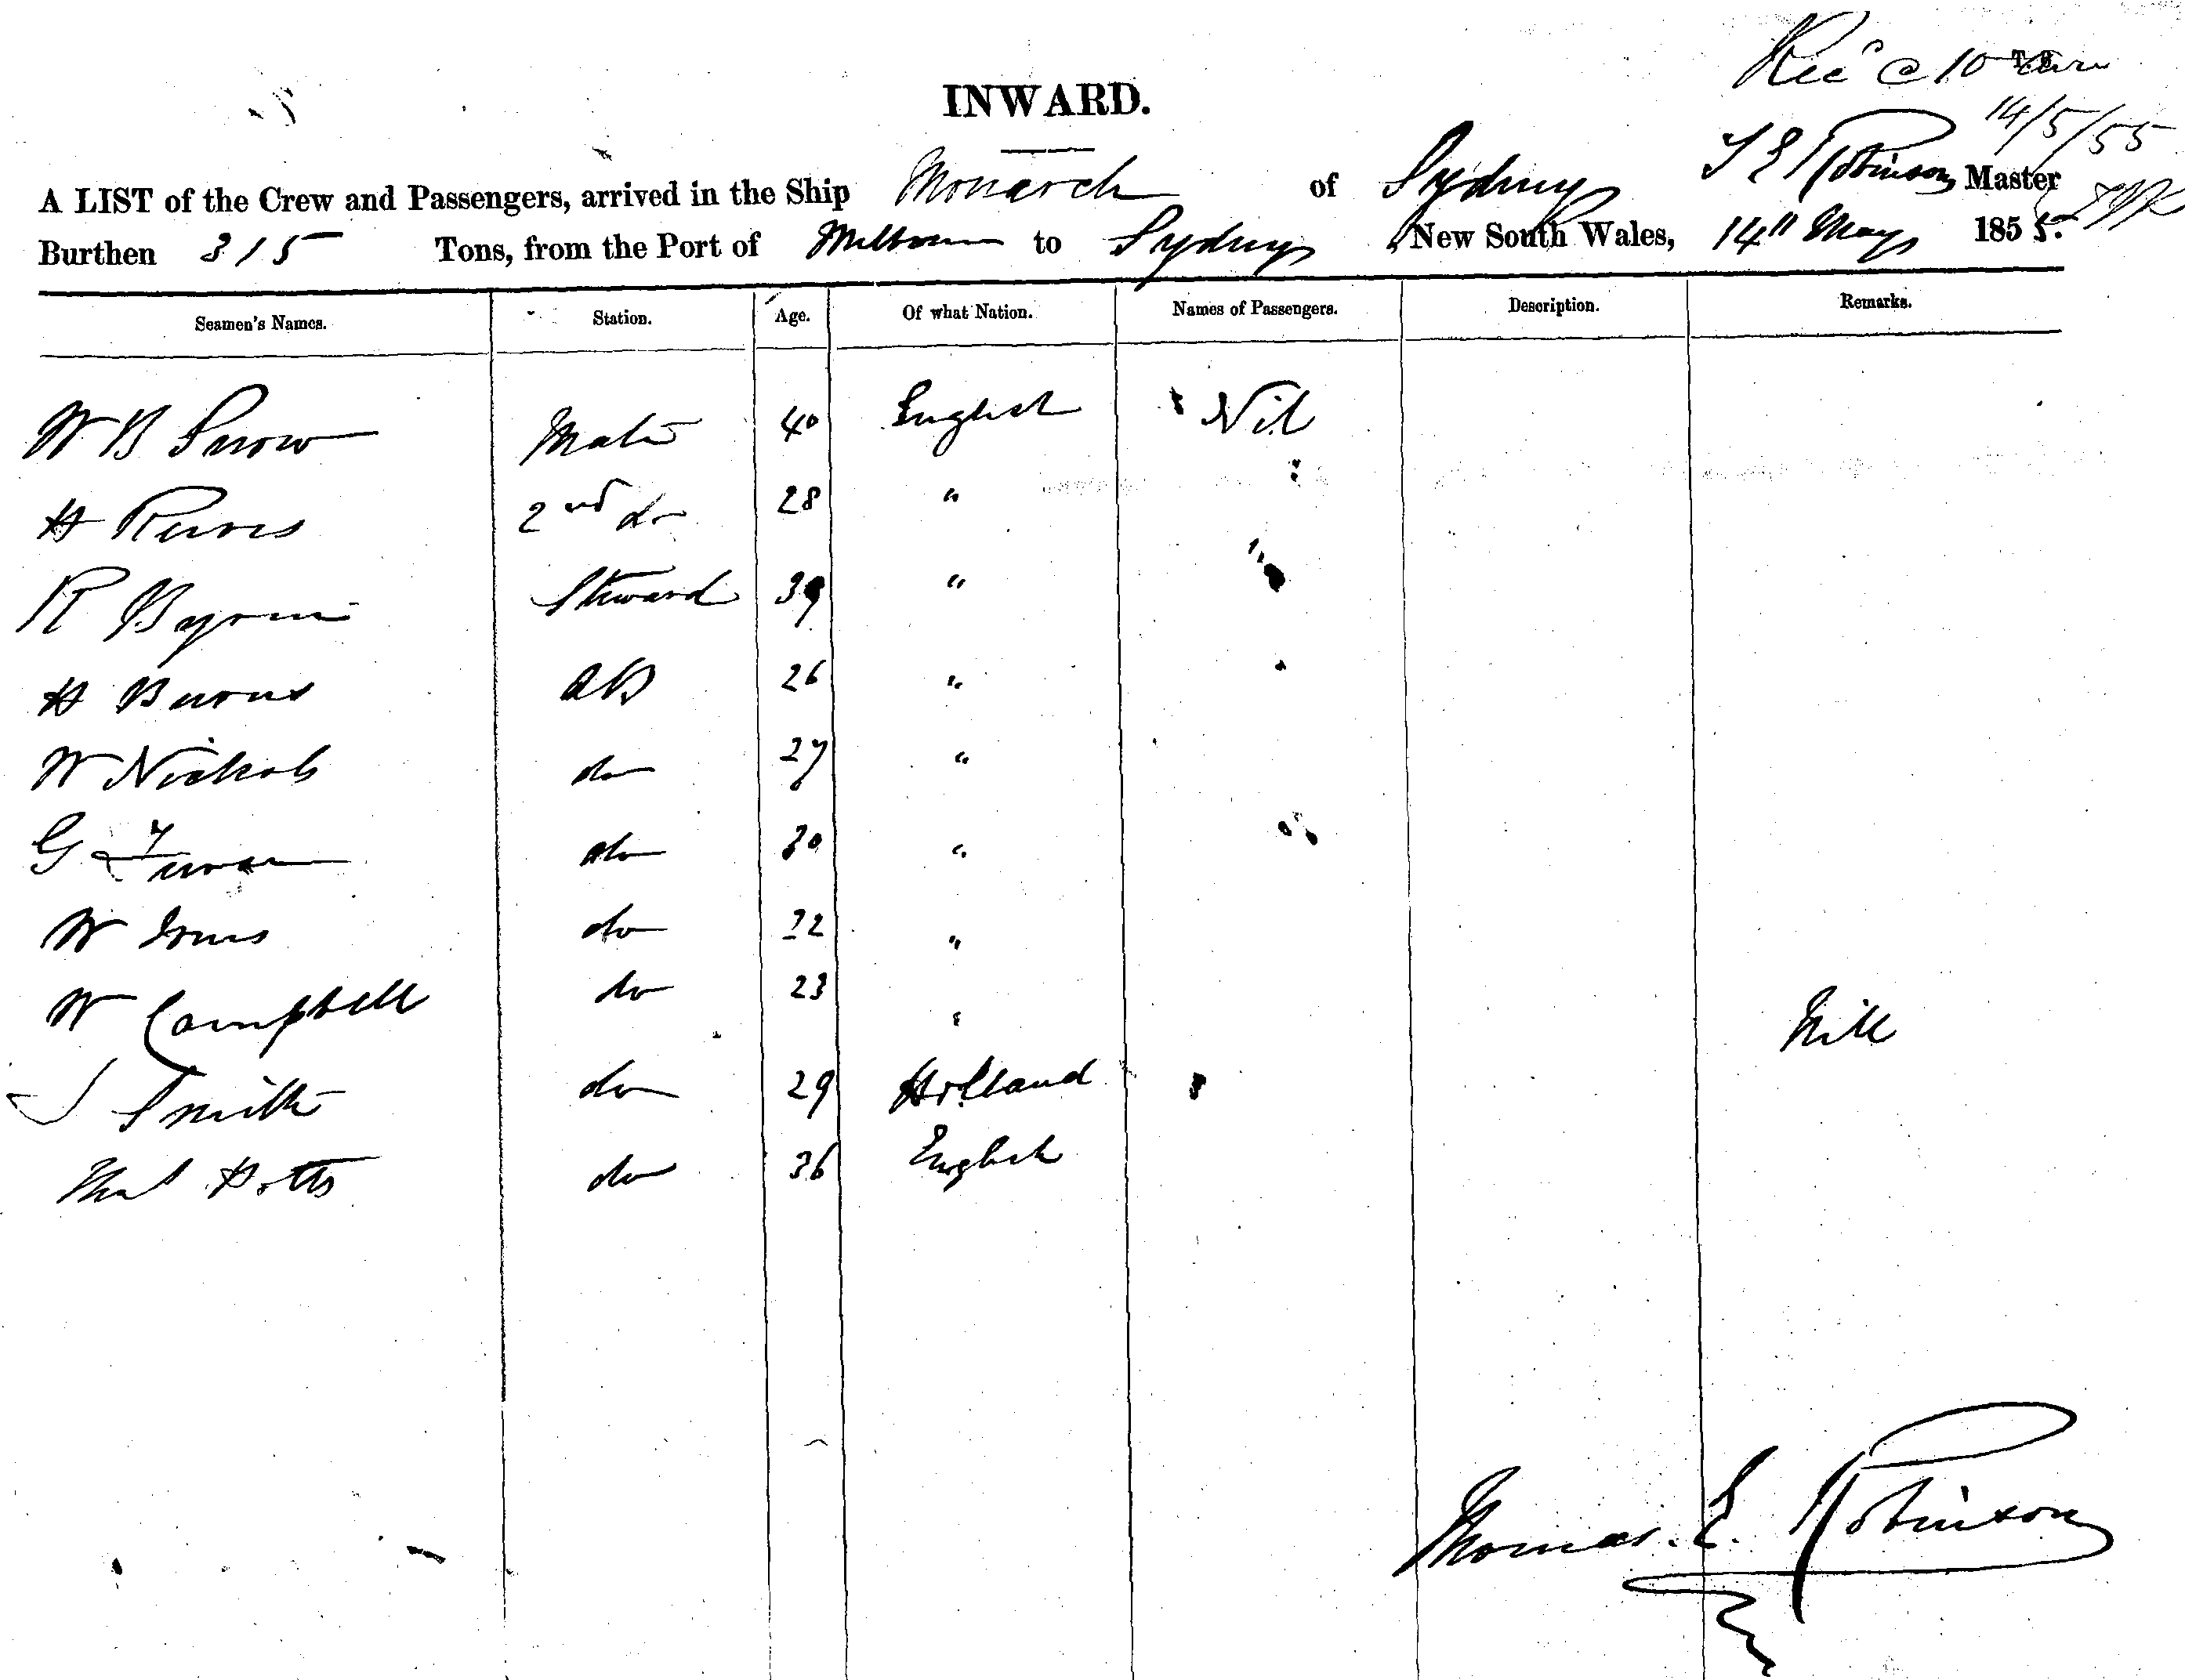 Rec'd @ 10 am
14/5/55
INWARD.
A LIST of the Crew and Passengers, arrived in the Ship Monarch of Sydney T E Robinson Master
Burthen 315 Tons, from the Port of Melbourne to Sydney New South Wales, 14" May 1855.
Seamen's Names. Station. Age. Of what Nation. Names of Passengers. Description. Remarks.
W B Snow Mate 40 English Nil
H 2nd do 28 "
R Byrne Steward 39 "
H Burns AB 26 "
W Nichols do 27 "
G do 30 "
W Jones do 22 "
W Campbell do 23 " Nill
J Smith do 29 Holland
Thos Potts do 36 English
Thomas. E. Robinson